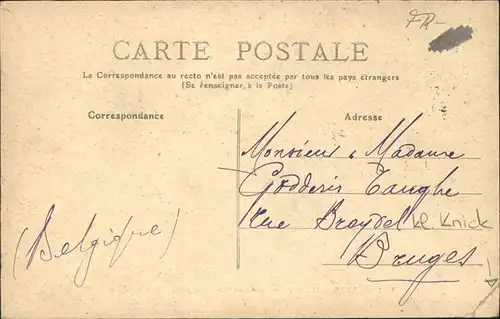 CARTE POSTALE
La Correspondance au recto n'est pas acceptée par tous les pays étrangers
(Se renseigner à la Poste)
Correspondance
Adresse
Monsieur & Madame
Godderis Tanghe
rue Breydel
kl. Knick
Bruges
(Belgique)